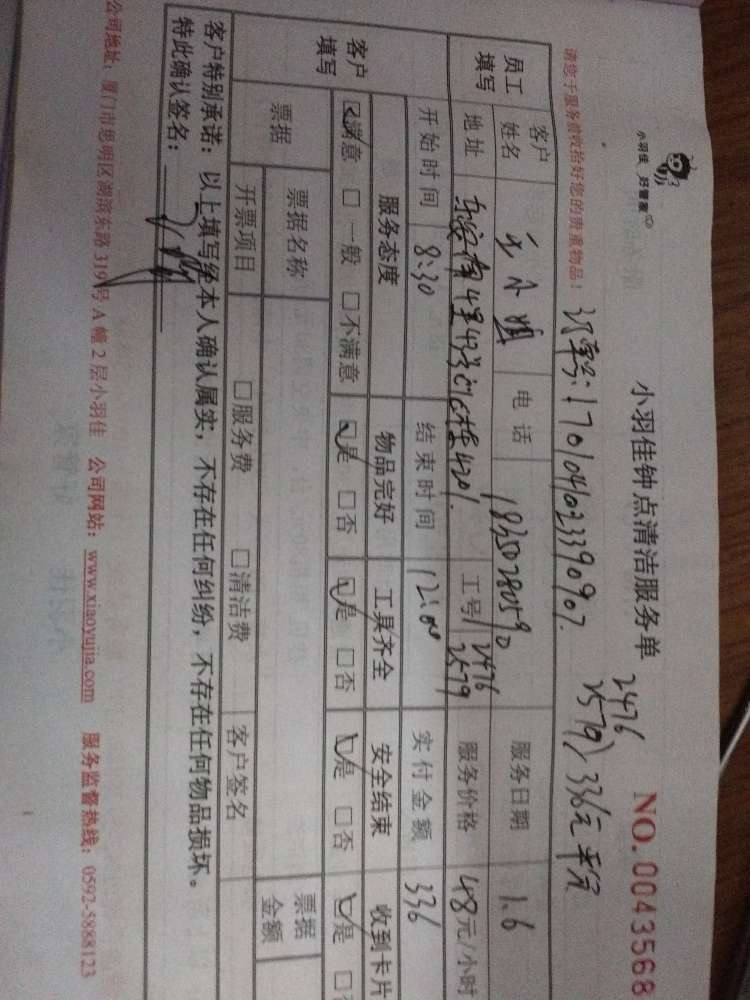 小羽佳 好管家
小羽佳钟点清洁服务单
NO.0043568
请您于服务前收拾好您的贵重物品!
订单号:1701041023390907.
2476
2579 } 336元 平分
员工填写 客户姓名 小姐 电话 18350780590 服务日期 1.6
地址 4里43号 4201. 工号 2476 2579 服务价格 48元/小时
开始时间 8:30 结束时间 12:00 实付金额 336
客户填写 服务态度 物品完好 工具齐全 安全结束 收到卡片
☑满意 □一般 □不满意 ☑是 □否 ☑是 □否 ☑是 □否 ☑是 □否
票据 票据名称 票据金额
开票项目 □服务费 □清洁费 客户签名
客户特别承诺:以上填写经本人确认属实,不存在任何纠纷,不存在任何物品损坏。
特此确认签名:
公司地址:厦门市思明区湖滨东路319号A幢2层小羽佳 公司网站:www.xiaoyujia.com 服务监督热线:0592-5888123